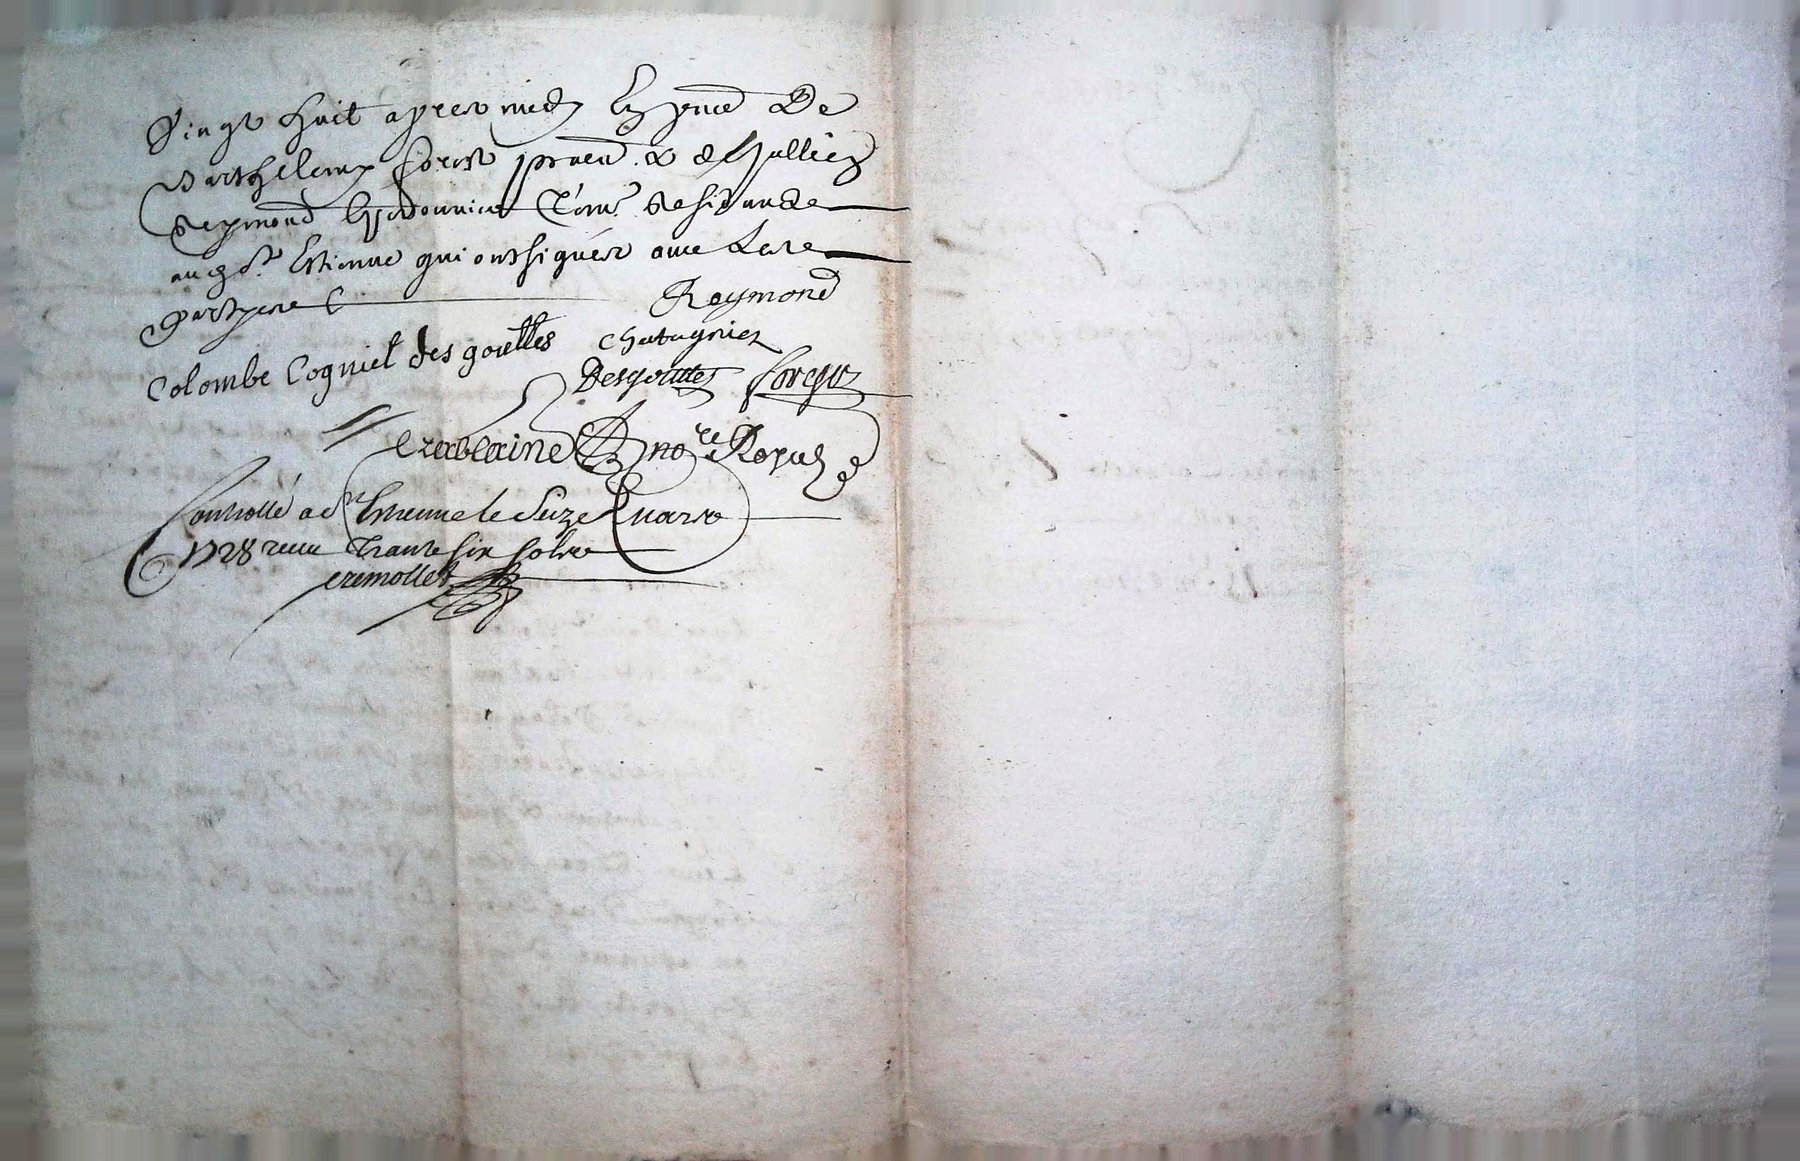 Vingt huit apres midy En pnce De
Barthelemy forest & Jullien
Reymond Cordonnier Tem. Residants
aud St. Estienne qui ont signéz avec Lesd
partyes
Reymond
Colombe Cogniel des gouttes chatagnier
Desgouttes forest
no.re Royal
Controllé a St Etienne le Seize mars
1728 receu Trante six sols
cremollet